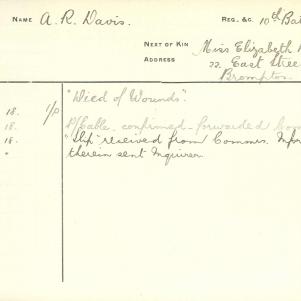 NAME A. R. Davis. REG. &C. 10th Bat
NEXT OF KIN Miss Elizabeth
ADDRESS 22. East Stree
Brompton
"Died of Wounds".
18. 1/p
18. P/Cable confirmed - forwarded
18. "Slip" received from Commis.
" therein sent Inquirer.